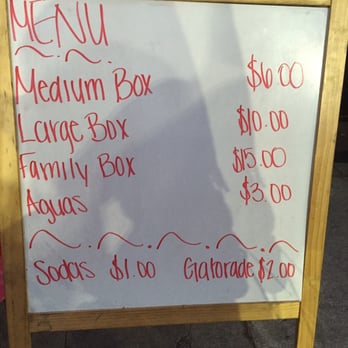 MENU
Medium Box $6.00
Large Box $10.00
Family Box $15.00
Aguas $3.00
Sodas $1.00 Gatorade $2.00